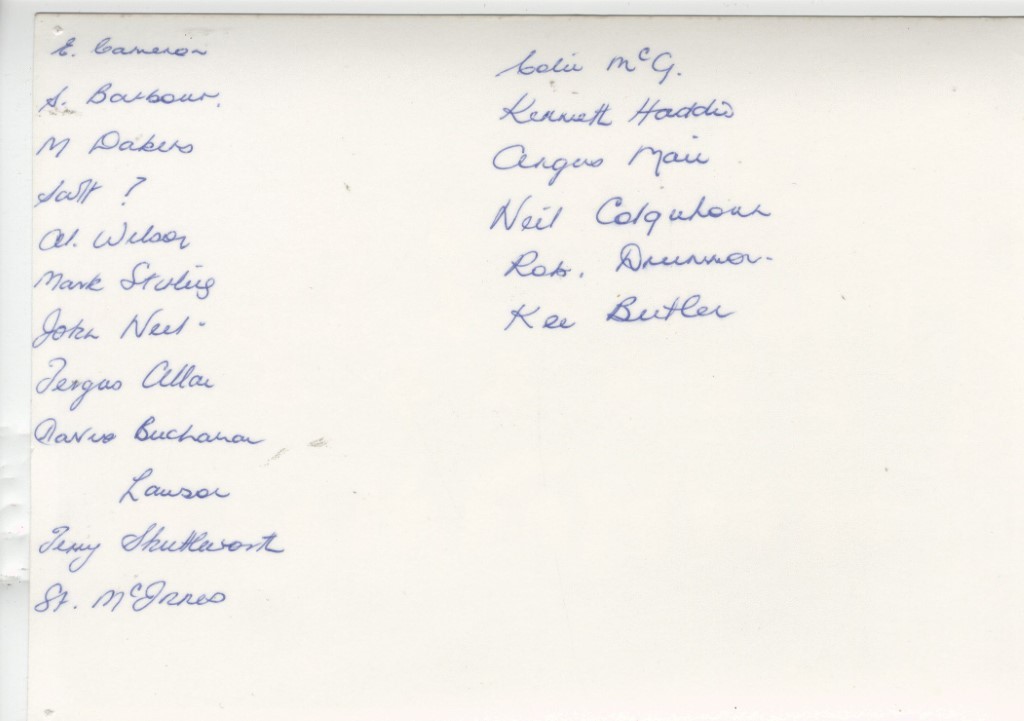 E. Cameron
S. Barbour.
M Dakers
?
Al. Wilson
Mark Stirling
John Neil.
Fergus Allan
Buchanan
Lawson
Terry Shuttleworth
St. McInnes
Colin McG.
Kenneth Haddow
Angus Mair
Neil Colquhoun
Rob. Drummon.
Ken Butler